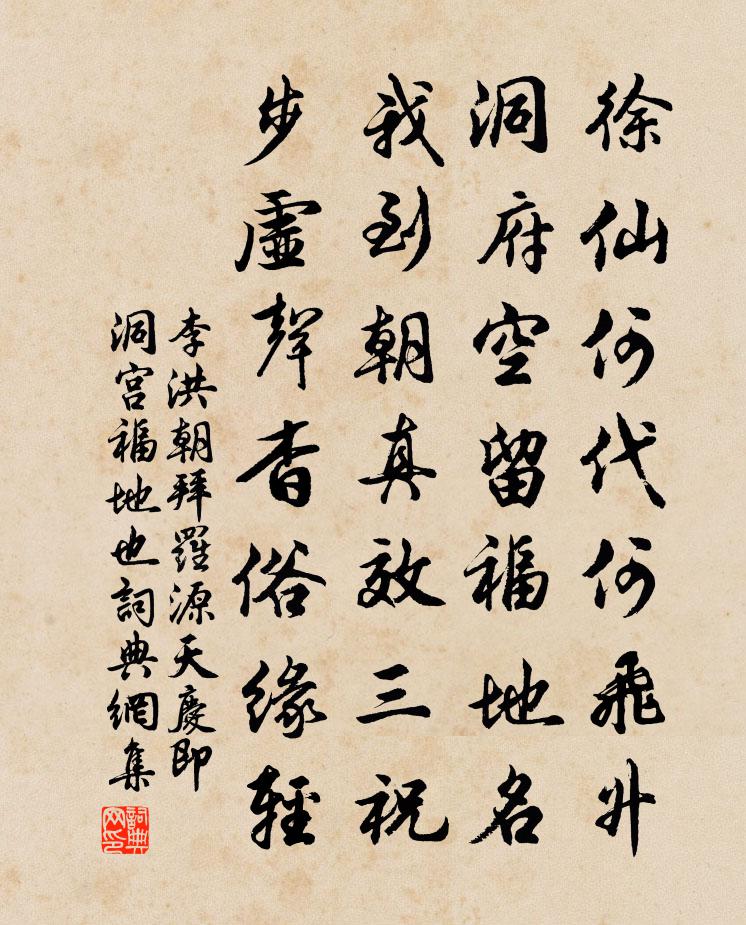 徐仙何代何飛升
洞府空留福地名
我到朝真效三祝
步虛聲杳俗緣輕
李洪朝拜羅源天慶即
洞宮福地也詞典網集
詞典网印